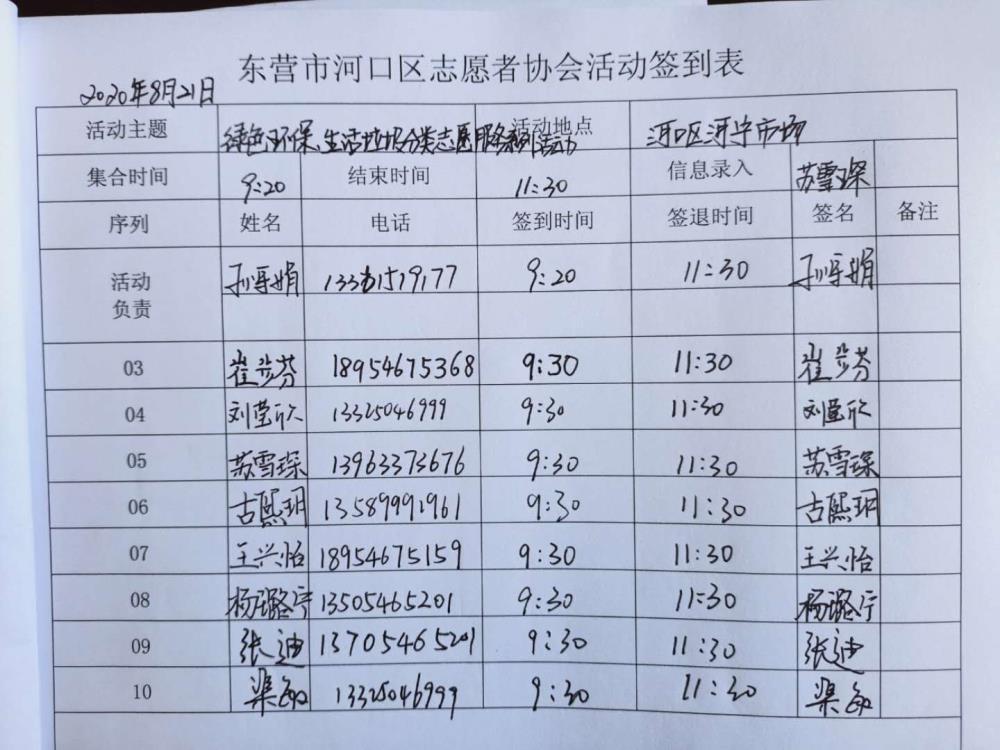 东营市河口区志愿者协会活动签到表
2020年8月21日
活动主题 绿色环保,生活垃圾分类志愿服务系列活动 活动地点 河口区河宁市场
集合时间 9:20 结束时间 11:30 信息录入 苏雪琛
序列 姓名 电话 签到时间 签退时间 签名 备注
活动 负责 孙娟 1519177 9:20 11:30 孙娟
03 崔步芬 18954675368 9:30 11:30 崔步芬
04 刘莹欣 13325046999 9:30 11:30 刘莹欣
05 苏雪琛 13963373676 9:30 11:30 苏雪琛
06 古熙玥 13589991961 9:30 11:30 古熙玥
07 王兴怡 18954675159 9:30 11:30 王兴怡
08 杨璐宁 13505465201 9:30 11:30 杨璐宁
09 张迪 13705465201 9:30 11:30 张迪
10 渠敏 13325046999 9:30 11:30 渠敏